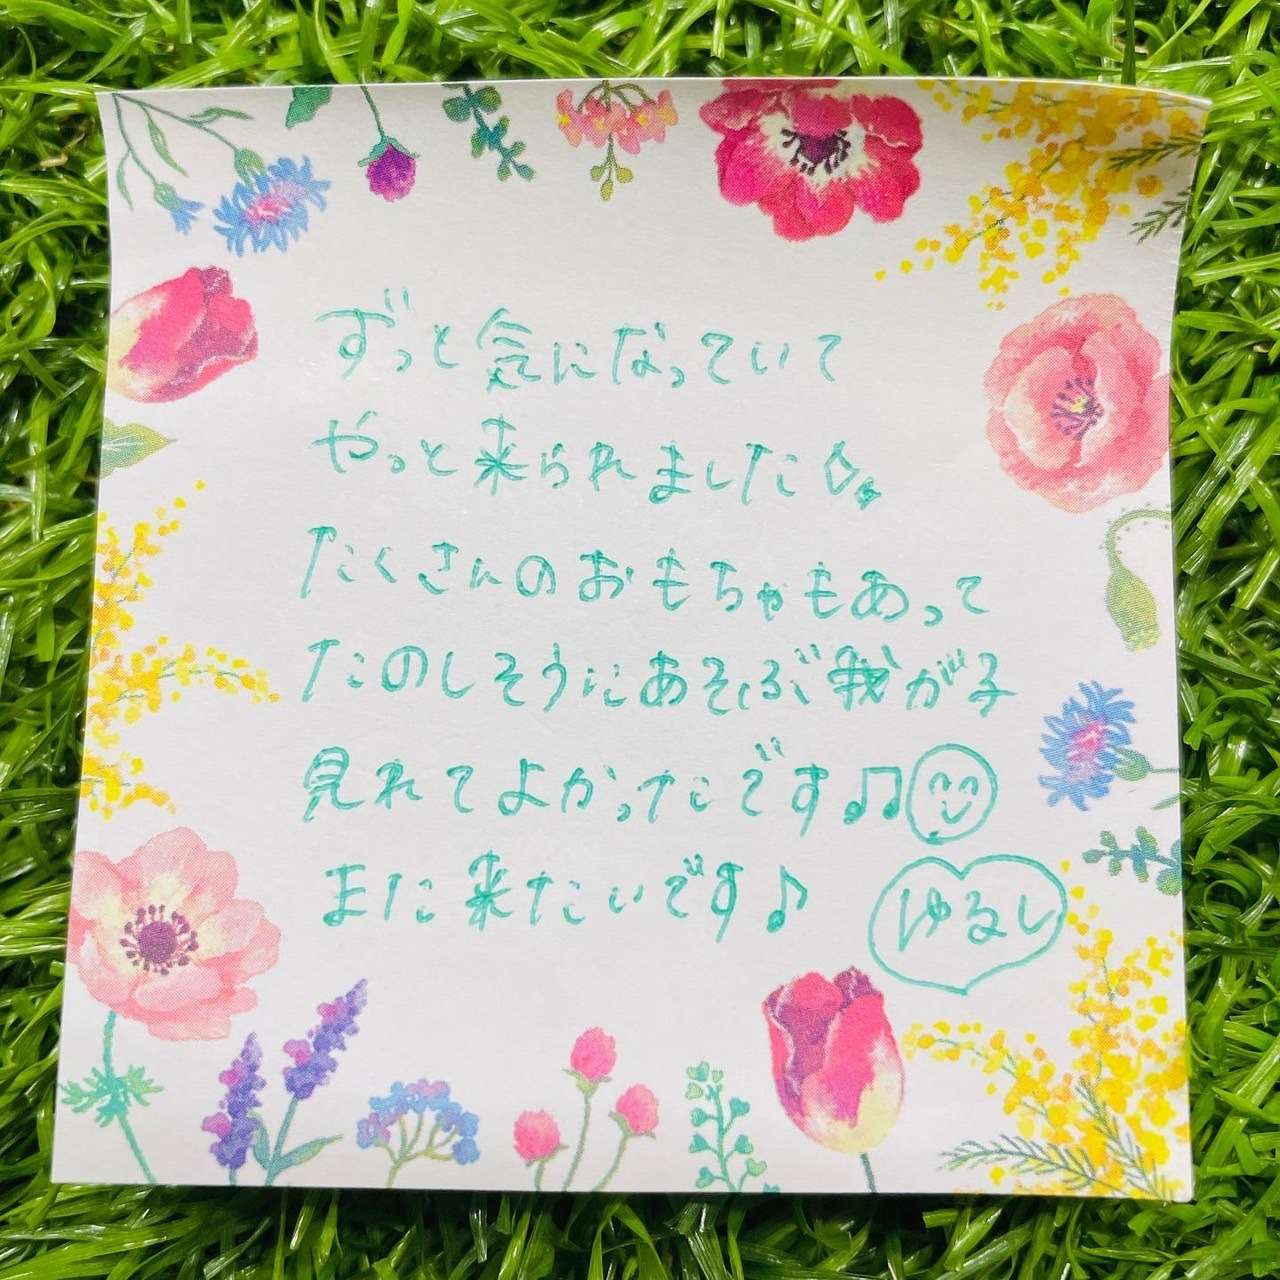 ずっと気になっていて
やっと来られました
たくさんのおもちゃもあって
たのしそうにあそぶ我が子
見れてよかったです♫
また来たいです♪
ゆるし